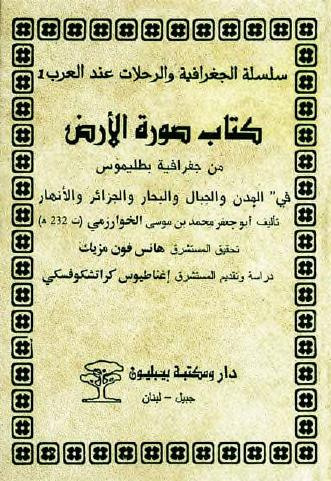 سلسلة الجغرافية والرحلات عند العرب 1
كتاب صورة الأرض
من جغرافية بطليموس
في" المدن والجبال والبحار والجزائر والأنهار
تأليف أبو جعفر محمد بن موسى الخوارزمي (ت 232 ه)
تحقيق المستشرق هانس فون مزيك
دراسة وتقديم المستشرق إغناطيوس كراتشكوفسكي
دار ومكتبة بيبليون
جبيل – لبنان